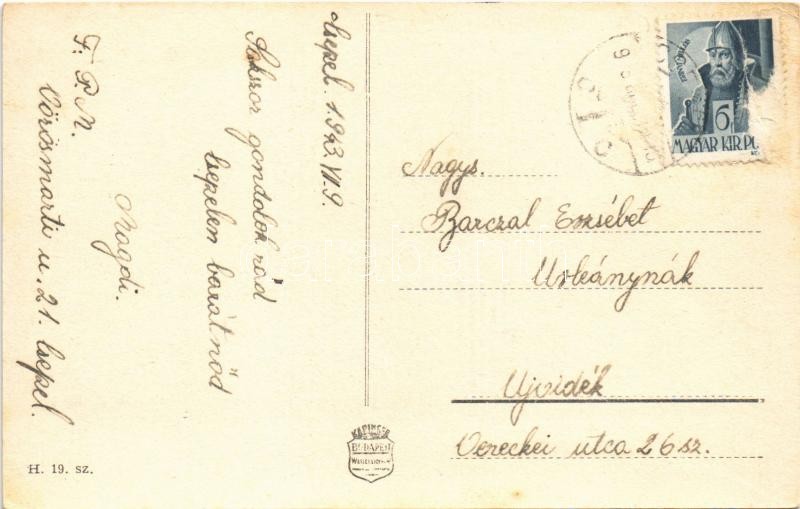 Csepel. 1.943. VI. 9.
Sokszor gondolok rád
Csepelen barátnőd
Magdi.
F. P. N.
Vörösmarti u. 21. Csepel.
H. 19. sz.
BUDAPEST
6
MAGYAR KIR. PO
Nagys.
Barczal Erzsébet
Urleánynák
Ujvidék
Vereckei utca 26 sz.